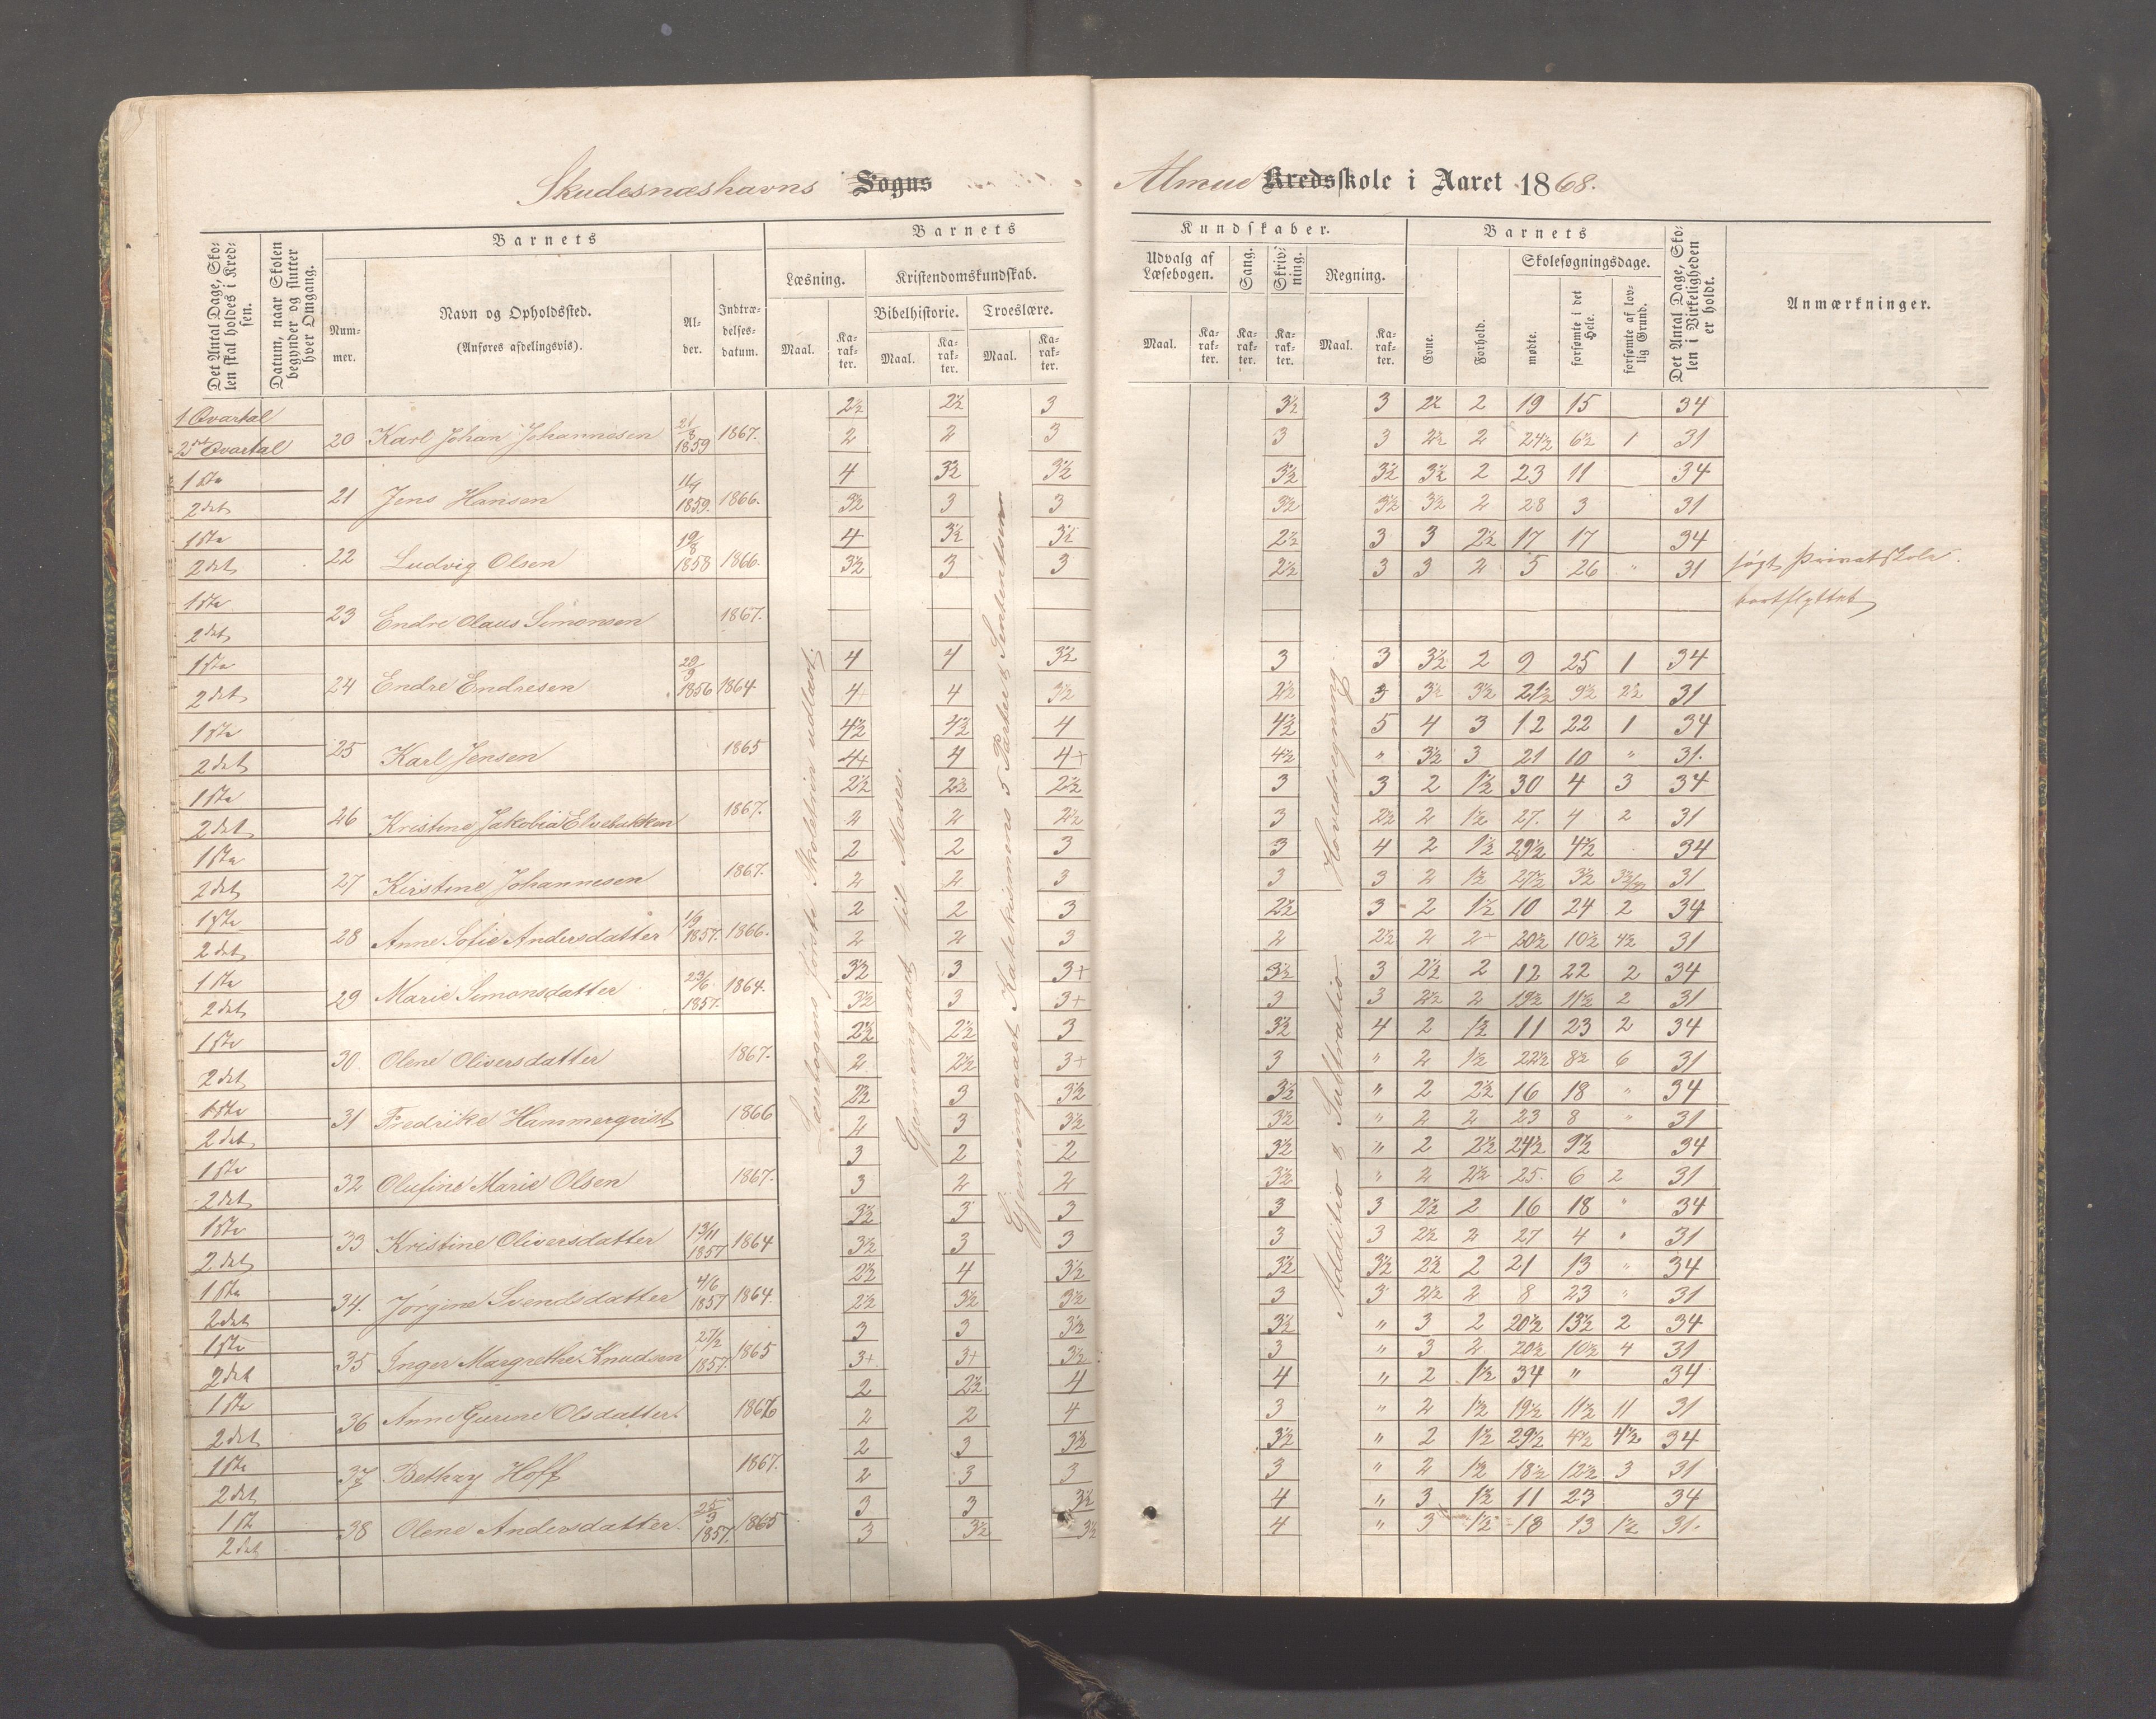 Skudesnæshavns Sogns
Almue Kredsskole i Aaret 1868.
Det Antal Dage, Skolen skal holdes i Kredsen.
Datum, naar Skolen begynder og slutter hver Omgang.
Barnets
Nummer.
Navn og Opholdssted.
(Anføres afdelingsvis).
Alder.
Indtrædelsesdatum.
Barnets
Læsning.
Maal.
Karakter.
Kristendomskundskab.
Bibelhistorie.
Maal.
Karakter.
Troeslære.
Maal.
Karakter.
Kundskaber.
Udvalg af Læsebogen.
Maal.
Karakter.
Sang.
Karakter.
Skrivning.
Karakter.
Regning.
Maal.
Karakter.
Barnets
Evne.
Forhold.
Skolesøgningsdage.
mødte.
forsømte i det Hele.
forsømte af lovlig Grund.
Det Antal Dage, Skolen i Virkeligheden er holdt.
Anmærkninger.
Læsebogens første Skoletrin udlæst.
Gjennemgaaet til Moses.
Gjennemgaaet Katekismens 5 Parter
Additio & Subtratio.
Hovedregning
1 Qvartal 2½ 2½ 3 3½ 3 2½ 2 19 15 34
2det Qvartal 20 Karl Johan Johannesen 21/8 1859 1867. 2 2 3 3 3 2½ 2 24½ 6½ 1 31
1ste 4 3½ 3½ 3½ 3½ 3½ 2 23 11 34
2det 21 Jens Hansen 11/9 1859. 1866. 3½ 3 3 3½ 3½ 3½ 2 28 3 31
1ste 4 3½ 3½ 2½ 3 3 2½ 17 17 34
2det 22 Ludvig Olsen 19/8 1858 1866. 3½ 3 3 2½ 3 3 2 5 26 " 31 søgt Privatskole.
1ste bortflyttet
2det 23 Endre Olaus Simonsen 1867.
1ste 4 4 3½ 3 3 3½ 2 9 25 1 34
2det 24 Endre Endresen 20/9 1856 1864 4+ 4 3½ 2½ 3 3½ 3½ 21½ 9½ 2½ 31
1ste 4½ 4½ 4 4½ 5 4 3 12 22 1 34
2det 25 Karl Jensen 1865 4+ 4 4+ 4½ " 3½ 3 21 10 " 31.
1ste 2½ 2½ 2½ 3 3 2 1½ 30 4 3 34
2det 26 Kristine Jakobia Elvebakken 1867. 2 2 2½ 3 2½ 2 1½ 27. 4 2 31
1ste 2 2 3 3 4 2 1½ 29½ 4½ 34
2det 27 Kirstine Johannesen 1867. 2 2 3 3 3 2 1½ 27½ 3½ 31
1ste 2 2 3 2½ 3 2 1½ 10 24 2 34
2det 28 Anne Sofie Andersdatter 1/9 1857. 1866. 2 2 3 2 2½ 2 2+ 20½ 10½ 4½ 31
1ste 3½ 3 3+ 3½ 3 2½ 2 12 22 2 34
2det 29 Marie Simonsdatter 23/6 1857. 1864. 3½ 3 3+ 3 3 2½ 2 19½ 11½ 2 31
1ste 2½ 2½ 3 3½ 4 2 1½ 11 23 2 34
2det 30. Olene Oliversdatter 1867. 2 2½ 3+ 3 " 2 1½ 22½ 8½ 6 31
1ste 2½ 3 3½ 3½ " 2 2½ 16 18 " 34
2det 31 Fredrikke Hammerqvist 1866 2 3 3½ 3½ " 2 2 23 8 " 31
1ste 3 2 2 3½ " 2 2½ 24½ 9½ 34
2det 32 Olufine Marie Olsen 1867. 3 2 2 3½ " 2 2½ 25. 6 2 31
1ste 3½ 3 3 3 3 2½ 2 16 18 " 34
2det 33 Kristine Oliversdatter 13/11 1857 1864 3½ 3 3 3 3 2½ 2 27 4 " 31
1ste 2½ 4 3½ 3½ 3½ 2½ 2 21 13 " 34
2det 34. Jørgine Svendsdatter 4/6 1857 1864. 2½ 3½ 3½ 3 3 2½ 2 8 23 " 31
1ste 3 3 3½ 3½ " 3 2 20½ 13½ 2 34
2det 35 Inger Margrethe Knudsen 27/2 1857. 1865 3+. 3+ 3½ 3 " 3 2 20½ 10½ 4 31
1ste 2 2½ 4 4 " 2 1½ 34 " 34
2det 36 Anne Gurine Olsdatter. 1866 2 2 4 3 " 2 1½ 19½ 11½ 11 31
1ste 2 3 3½ 3½ " 2 1½ 29½ 4½ 4½ 34
2det 37 Bethzy Hoff 1867. 2 3 3 3 " 2 1½ 18½ 12½ 3 31
1st 3 3 3½ 4 " 3 1½ 11 23 34
2det 38 Olene Andersdatter. 25/3 1857. 1865 3 3½ 3½ 4 " 3 1½ 18 13 1½ 31.